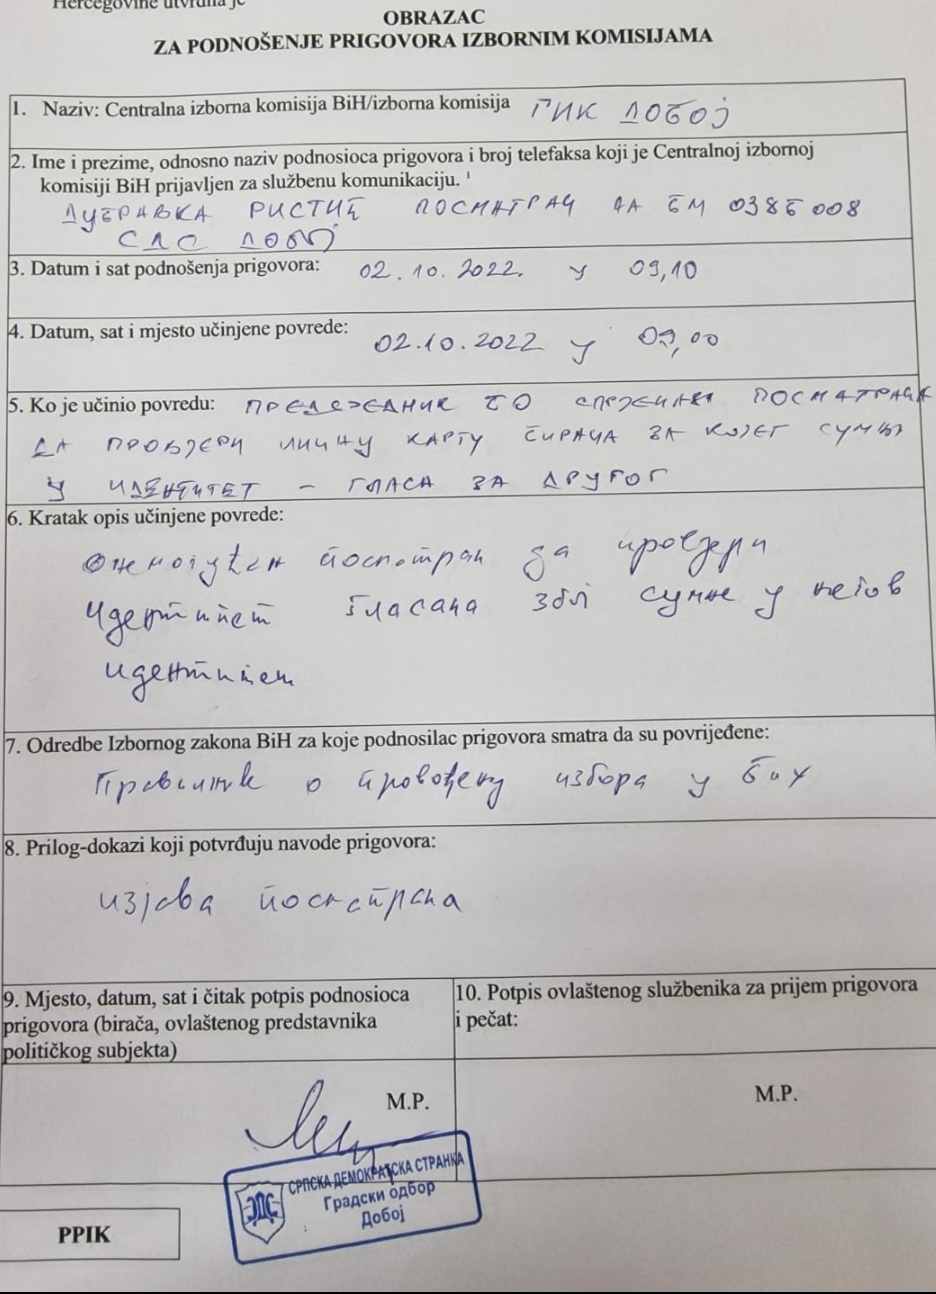 Hercegovine utvrdila je
OBRAZAC
ZA PODNOŠENJE PRIGOVORA IZBORNIM KOMISIJAMA
1. Naziv: Centralna izborna komisija BiH/izborna komisija ГИК ДОБОЈ
2. Ime i prezime, odnosno naziv podnosioca prigovora i broj telefaksa koji je Centralnoj izbornoj
komisiji BiH prijavljen za službenu komunikaciju. 1
ДУБРАВКА РИСТИЋ ПОСМАТРАЧ НА БМ 038Б008
СДС ДОБОЈ
3. Datum i sat podnošenja prigovora: 02.10.2022. у 09,10
4. Datum, sat i mjesto učinjene povrede: 02.10.2022 у 09,00
5. Ko je učinio povredu: ПРЕДСЈЕДНИК БО ПОСМАТРАЧА
ДА ПРОВЈЕРИ ЛИЧНУ КАРТУ БИРАЧА ЗА КОЈЕГ СУМЊА
У ИДЕНТИТЕТ - ГЛАСА ЗА ДРУГОГ
6. Kratak opis učinjene povrede:
да провјери
идентитет гласача због сумње у његов
идентитет
7. Odredbe Izbornog zakona BiH za koje podnosilac prigovora smatra da su povrijeđene:
Правилник о провођењу избора у БиХ
8. Prilog-dokazi koji potvrđuju navode prigovora:
изјава посматрача
9. Mjesto, datum, sat i čitak potpis podnosioca
prigovora (birača, ovlaštenog predstavnika
političkog subjekta)
10. Potpis ovlaštenog službenika za prijem prigovora
i pečat:
M.P.
M.P.
СРПСКА ДЕМОКРАТСКА СТРАНКА
Градски одбор
Добој
СДС
PPIK